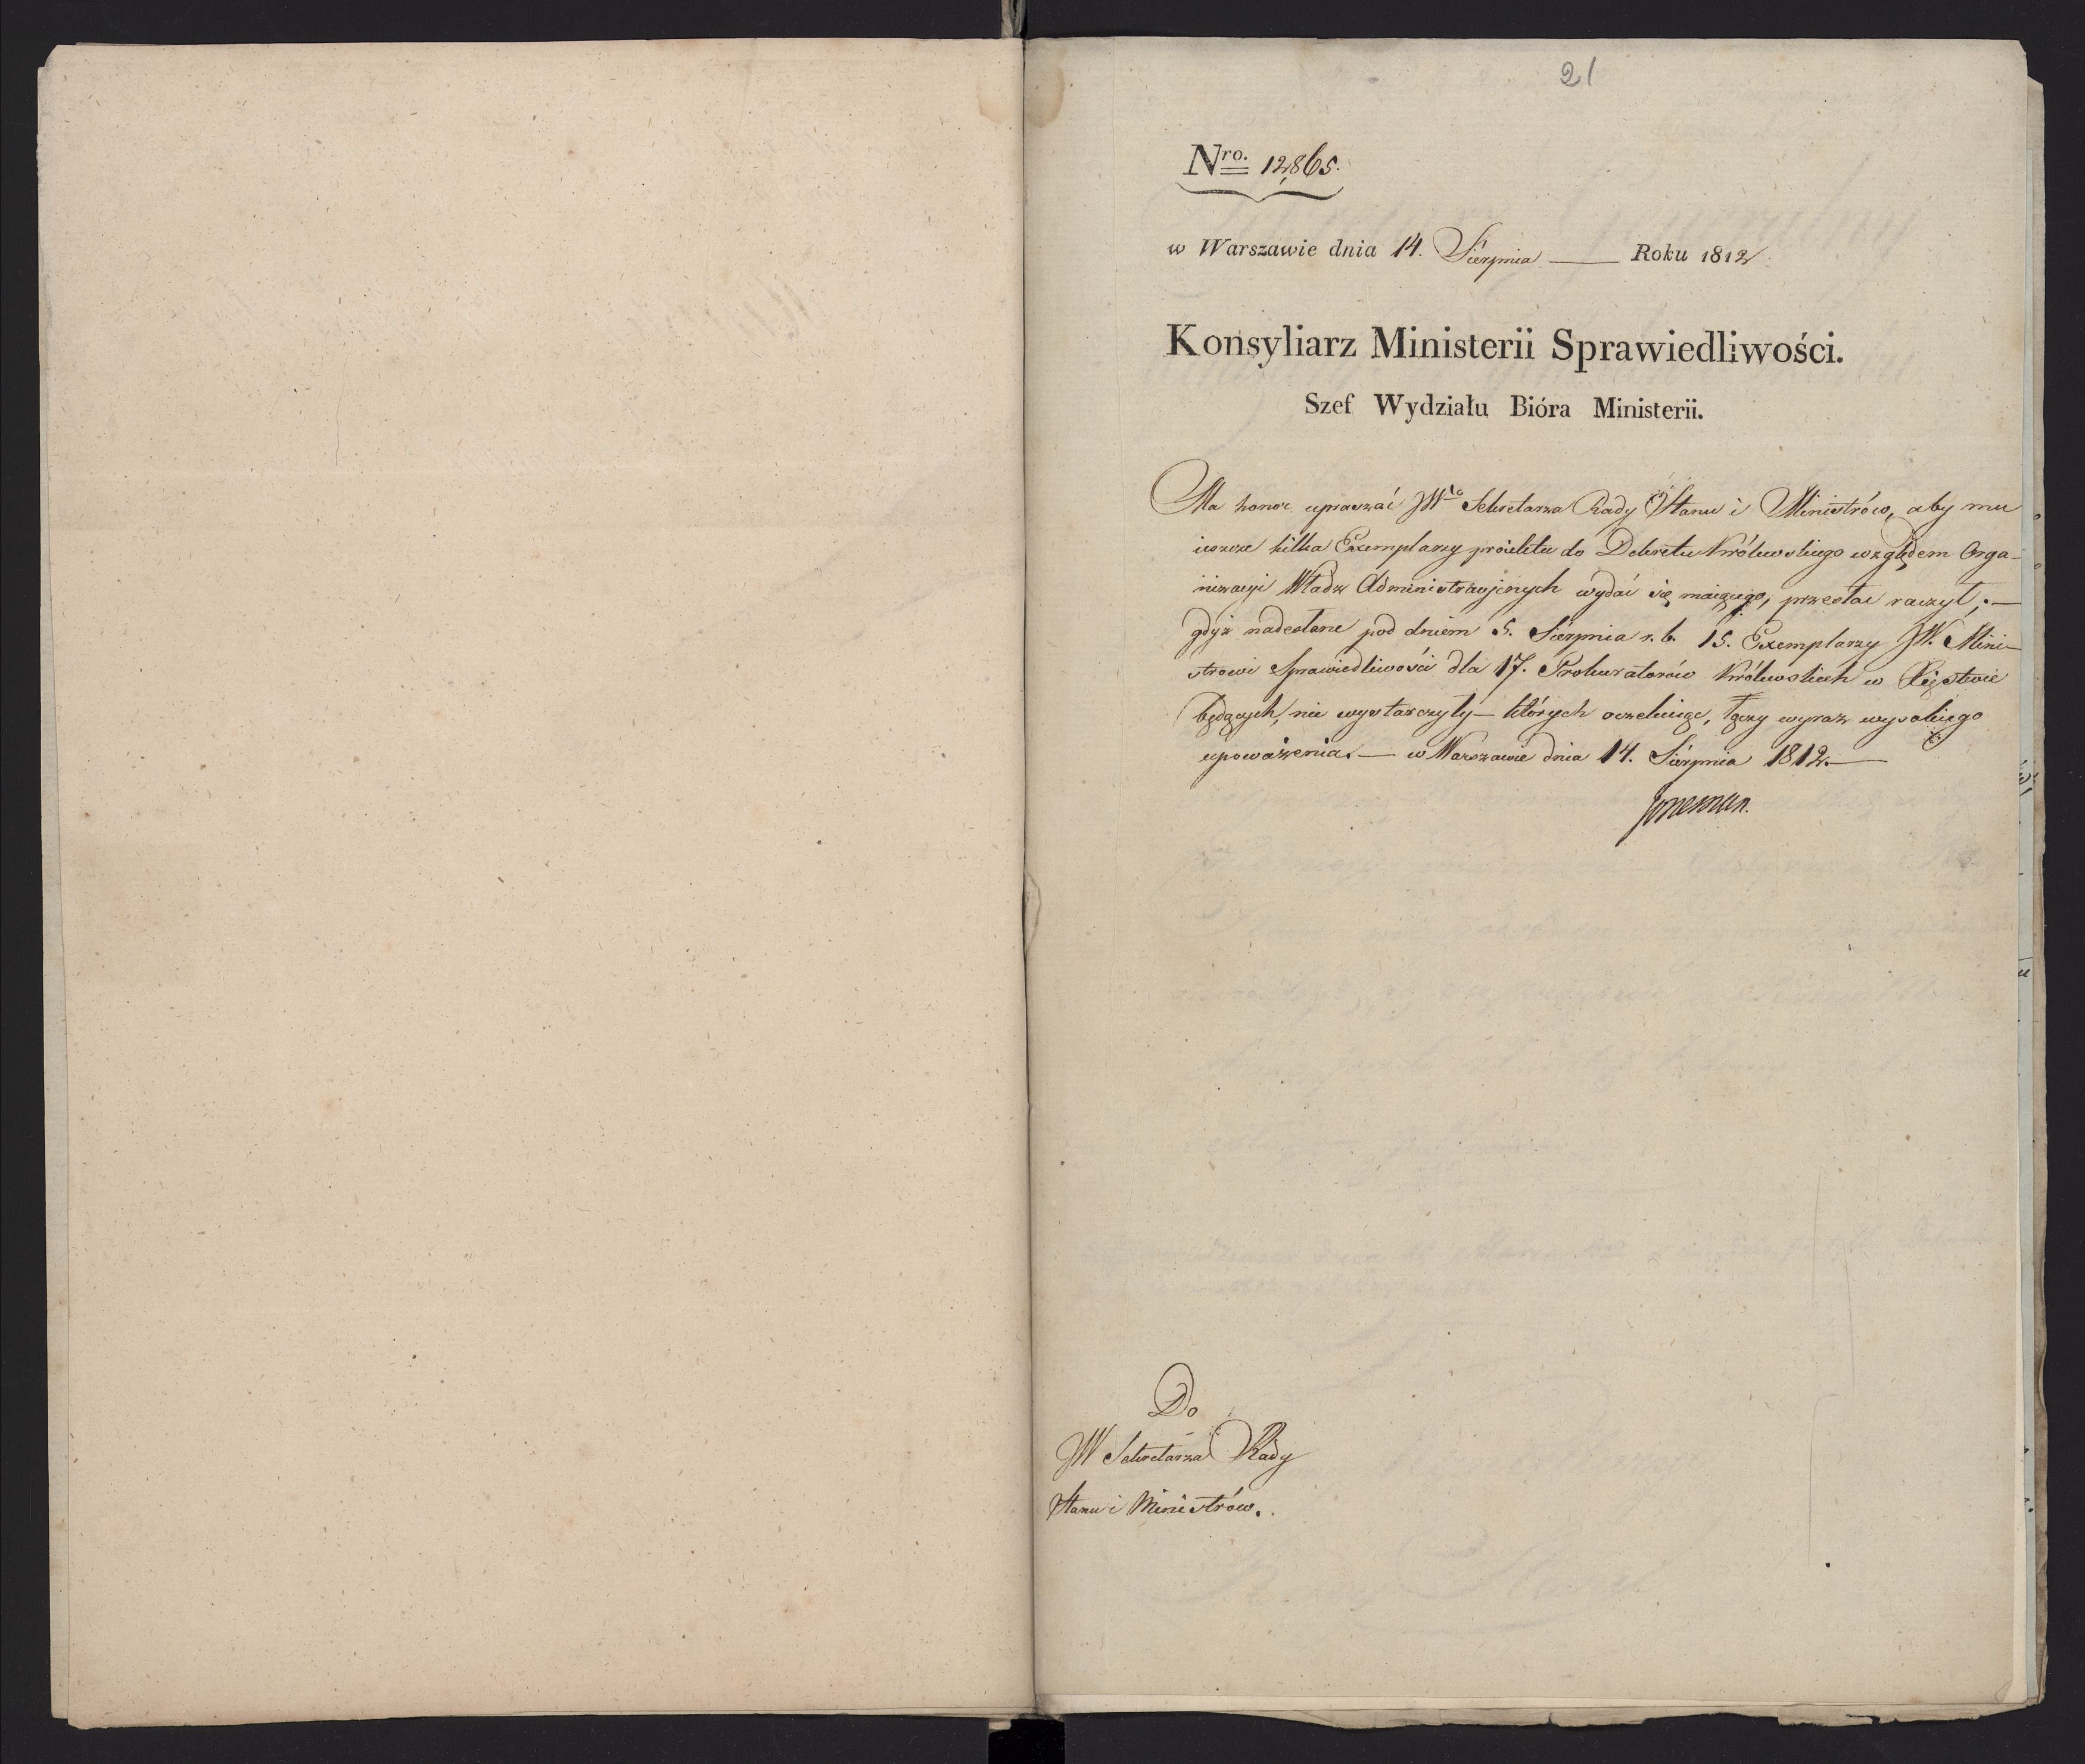 21
Nro. 12,865.
w Warszawie dnia 14. Sierpnia — Roku 1812
Konsyliarz Ministerii Sprawiedliwości.
Szef Wydziału Bióra Ministerii.
Ma honor upraszać JWgo Sekretarza Rady Stanu i Ministrów, aby mu
ieszcze kilka Exemplarzy proiektu do Dekretu Królewskiego względem Orga-
nizacyi Władz Administracyjnych wydać się maiącego, przesłać raczył; —
gdyż nadesłane pod dniem 5. Sierpnia r. b. 15. Exemplarzy JW. Mini-
strowi Sprawiedliwości dla 17. Prokuratorów Królewskich w Xięstwie
będących, nie wystarczyły — których oczekuiąc, łączy wyraz wysokiego
upoważenia. — w Warszawie dnia 14. Sierpnia 1812. —
Do
JW Sekretarza Rady
Stanu i Ministrów.